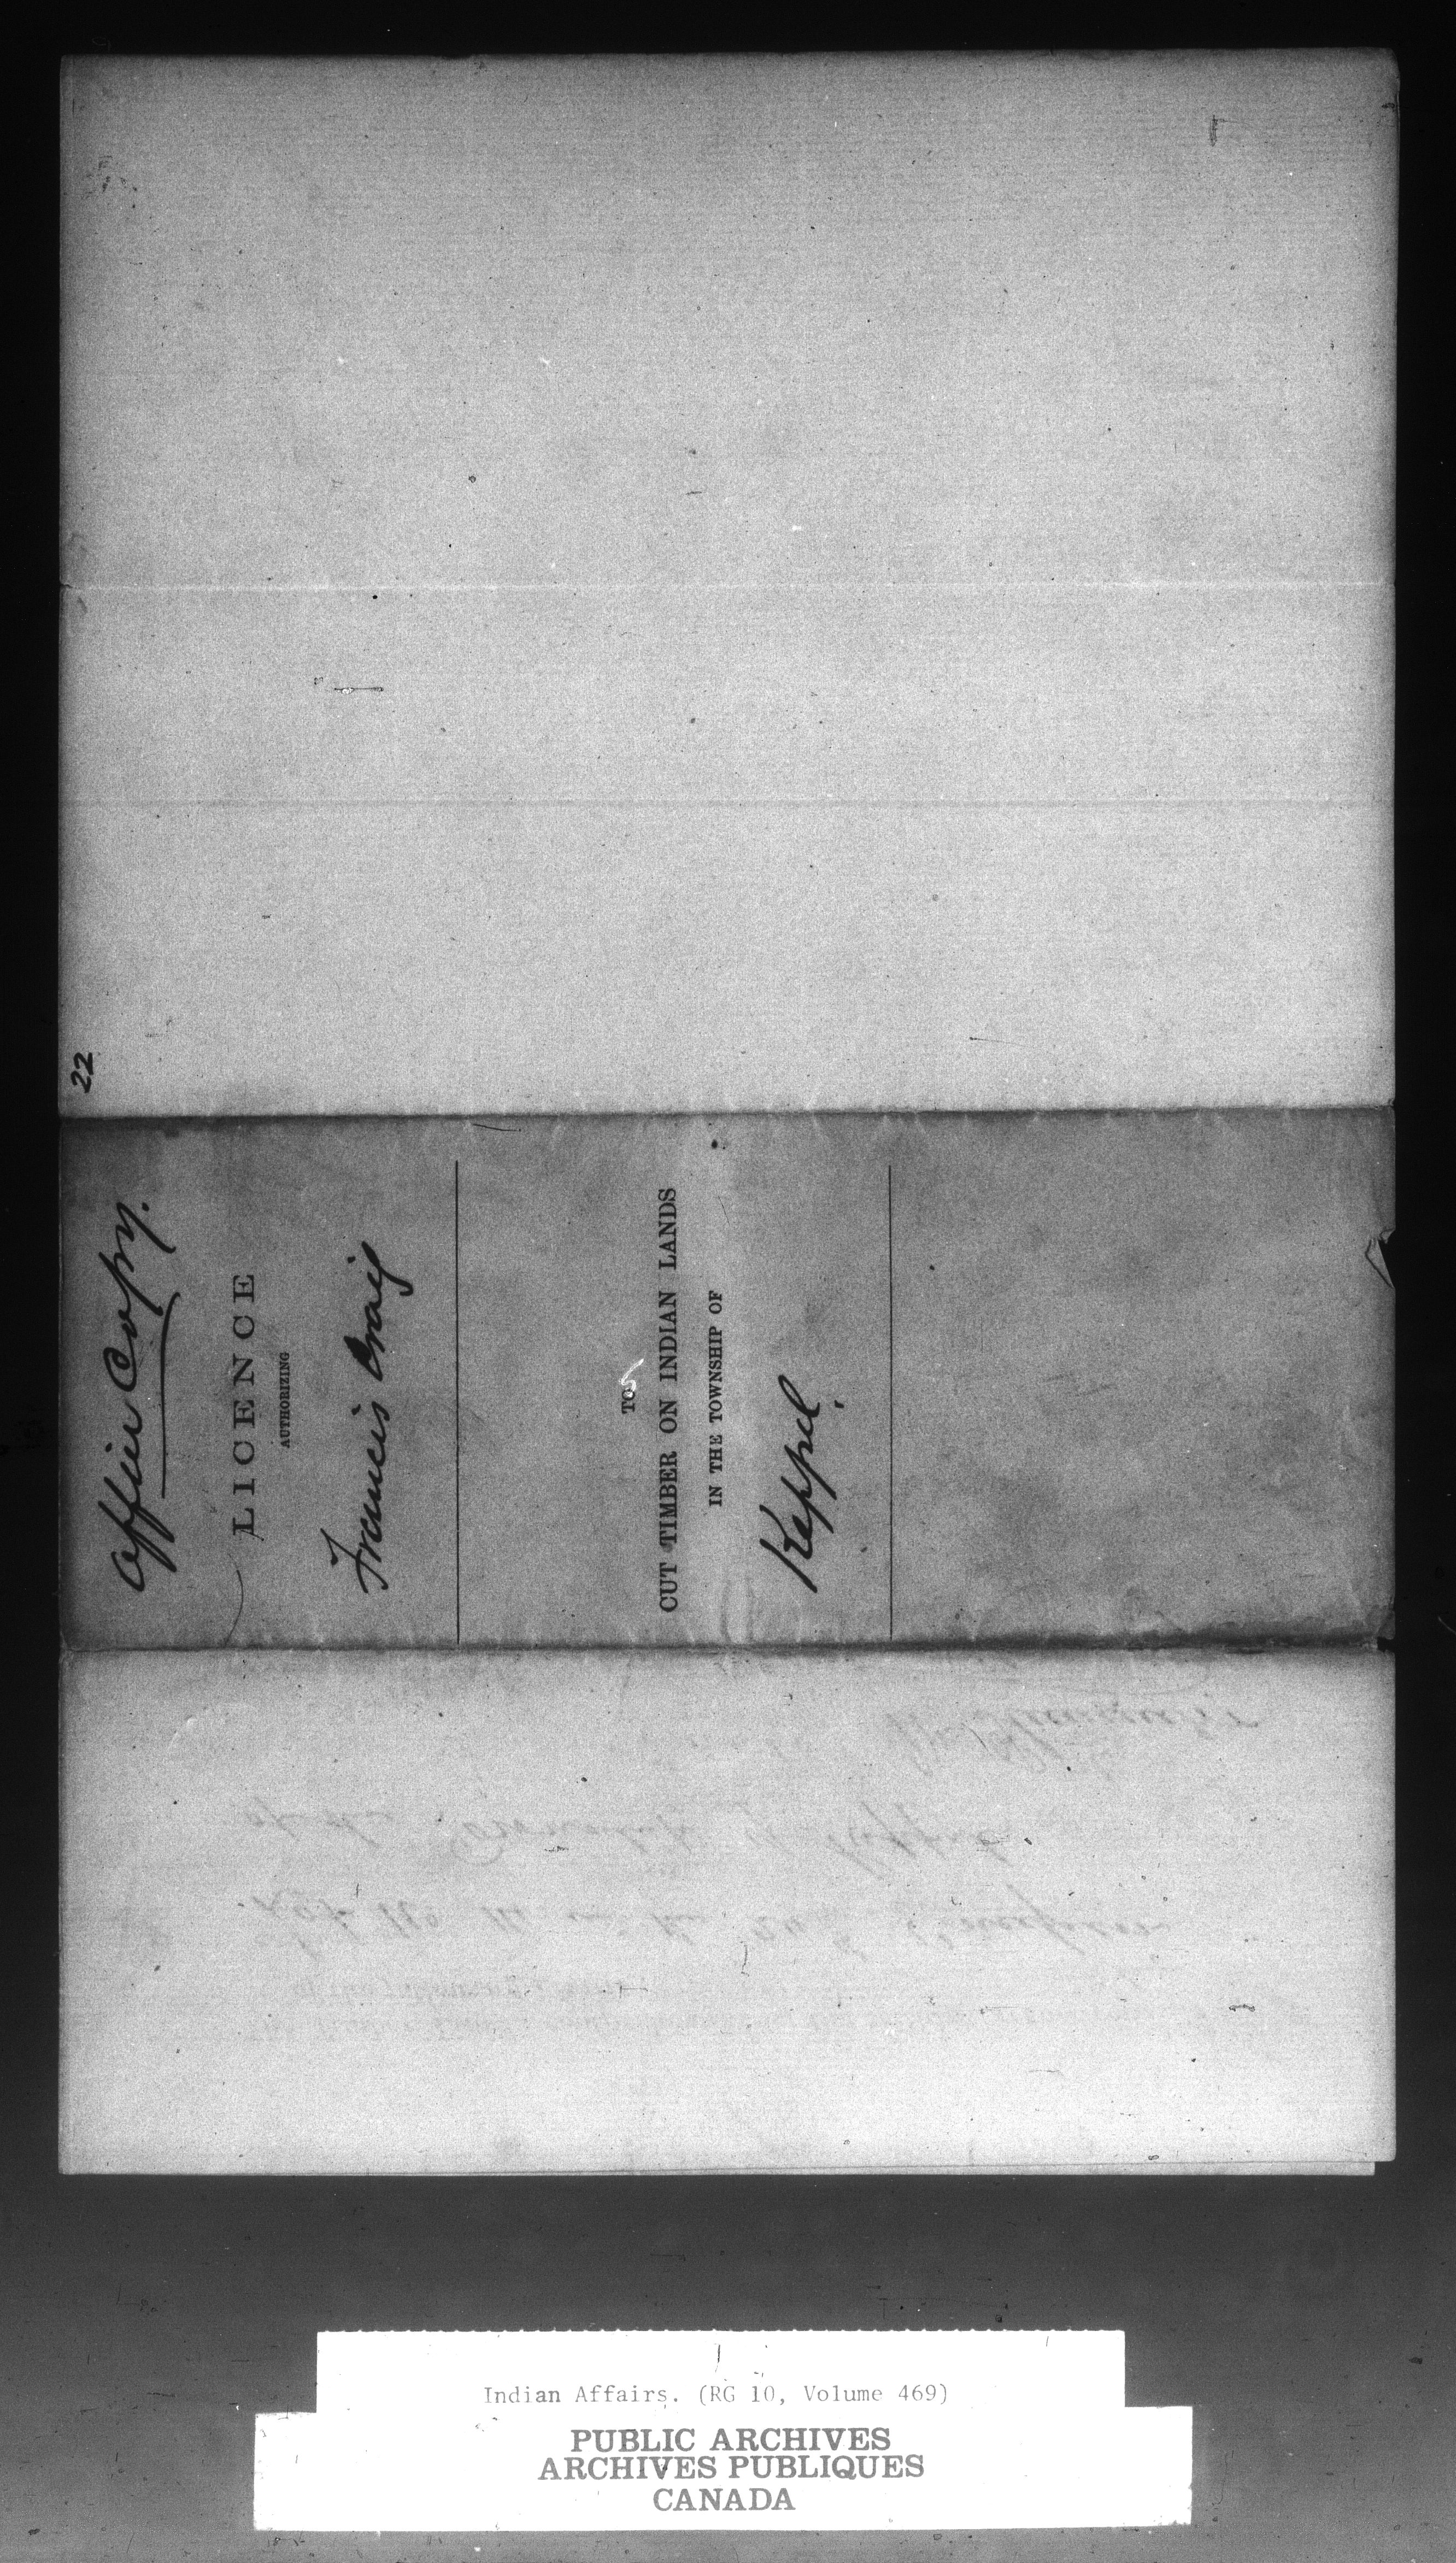 22
Office Copy.
LICENCE
AUTHORIZING
Francis Craig
TO
CUT TIMBER ON INDIAN LANDS
IN THE TOWNSHIP OF
Keppel.
Indian Affairs. (RG 10, Volume 469)
PUBLIC ARCHIVES
ARCHIVES PUBLIQUES
CANADA